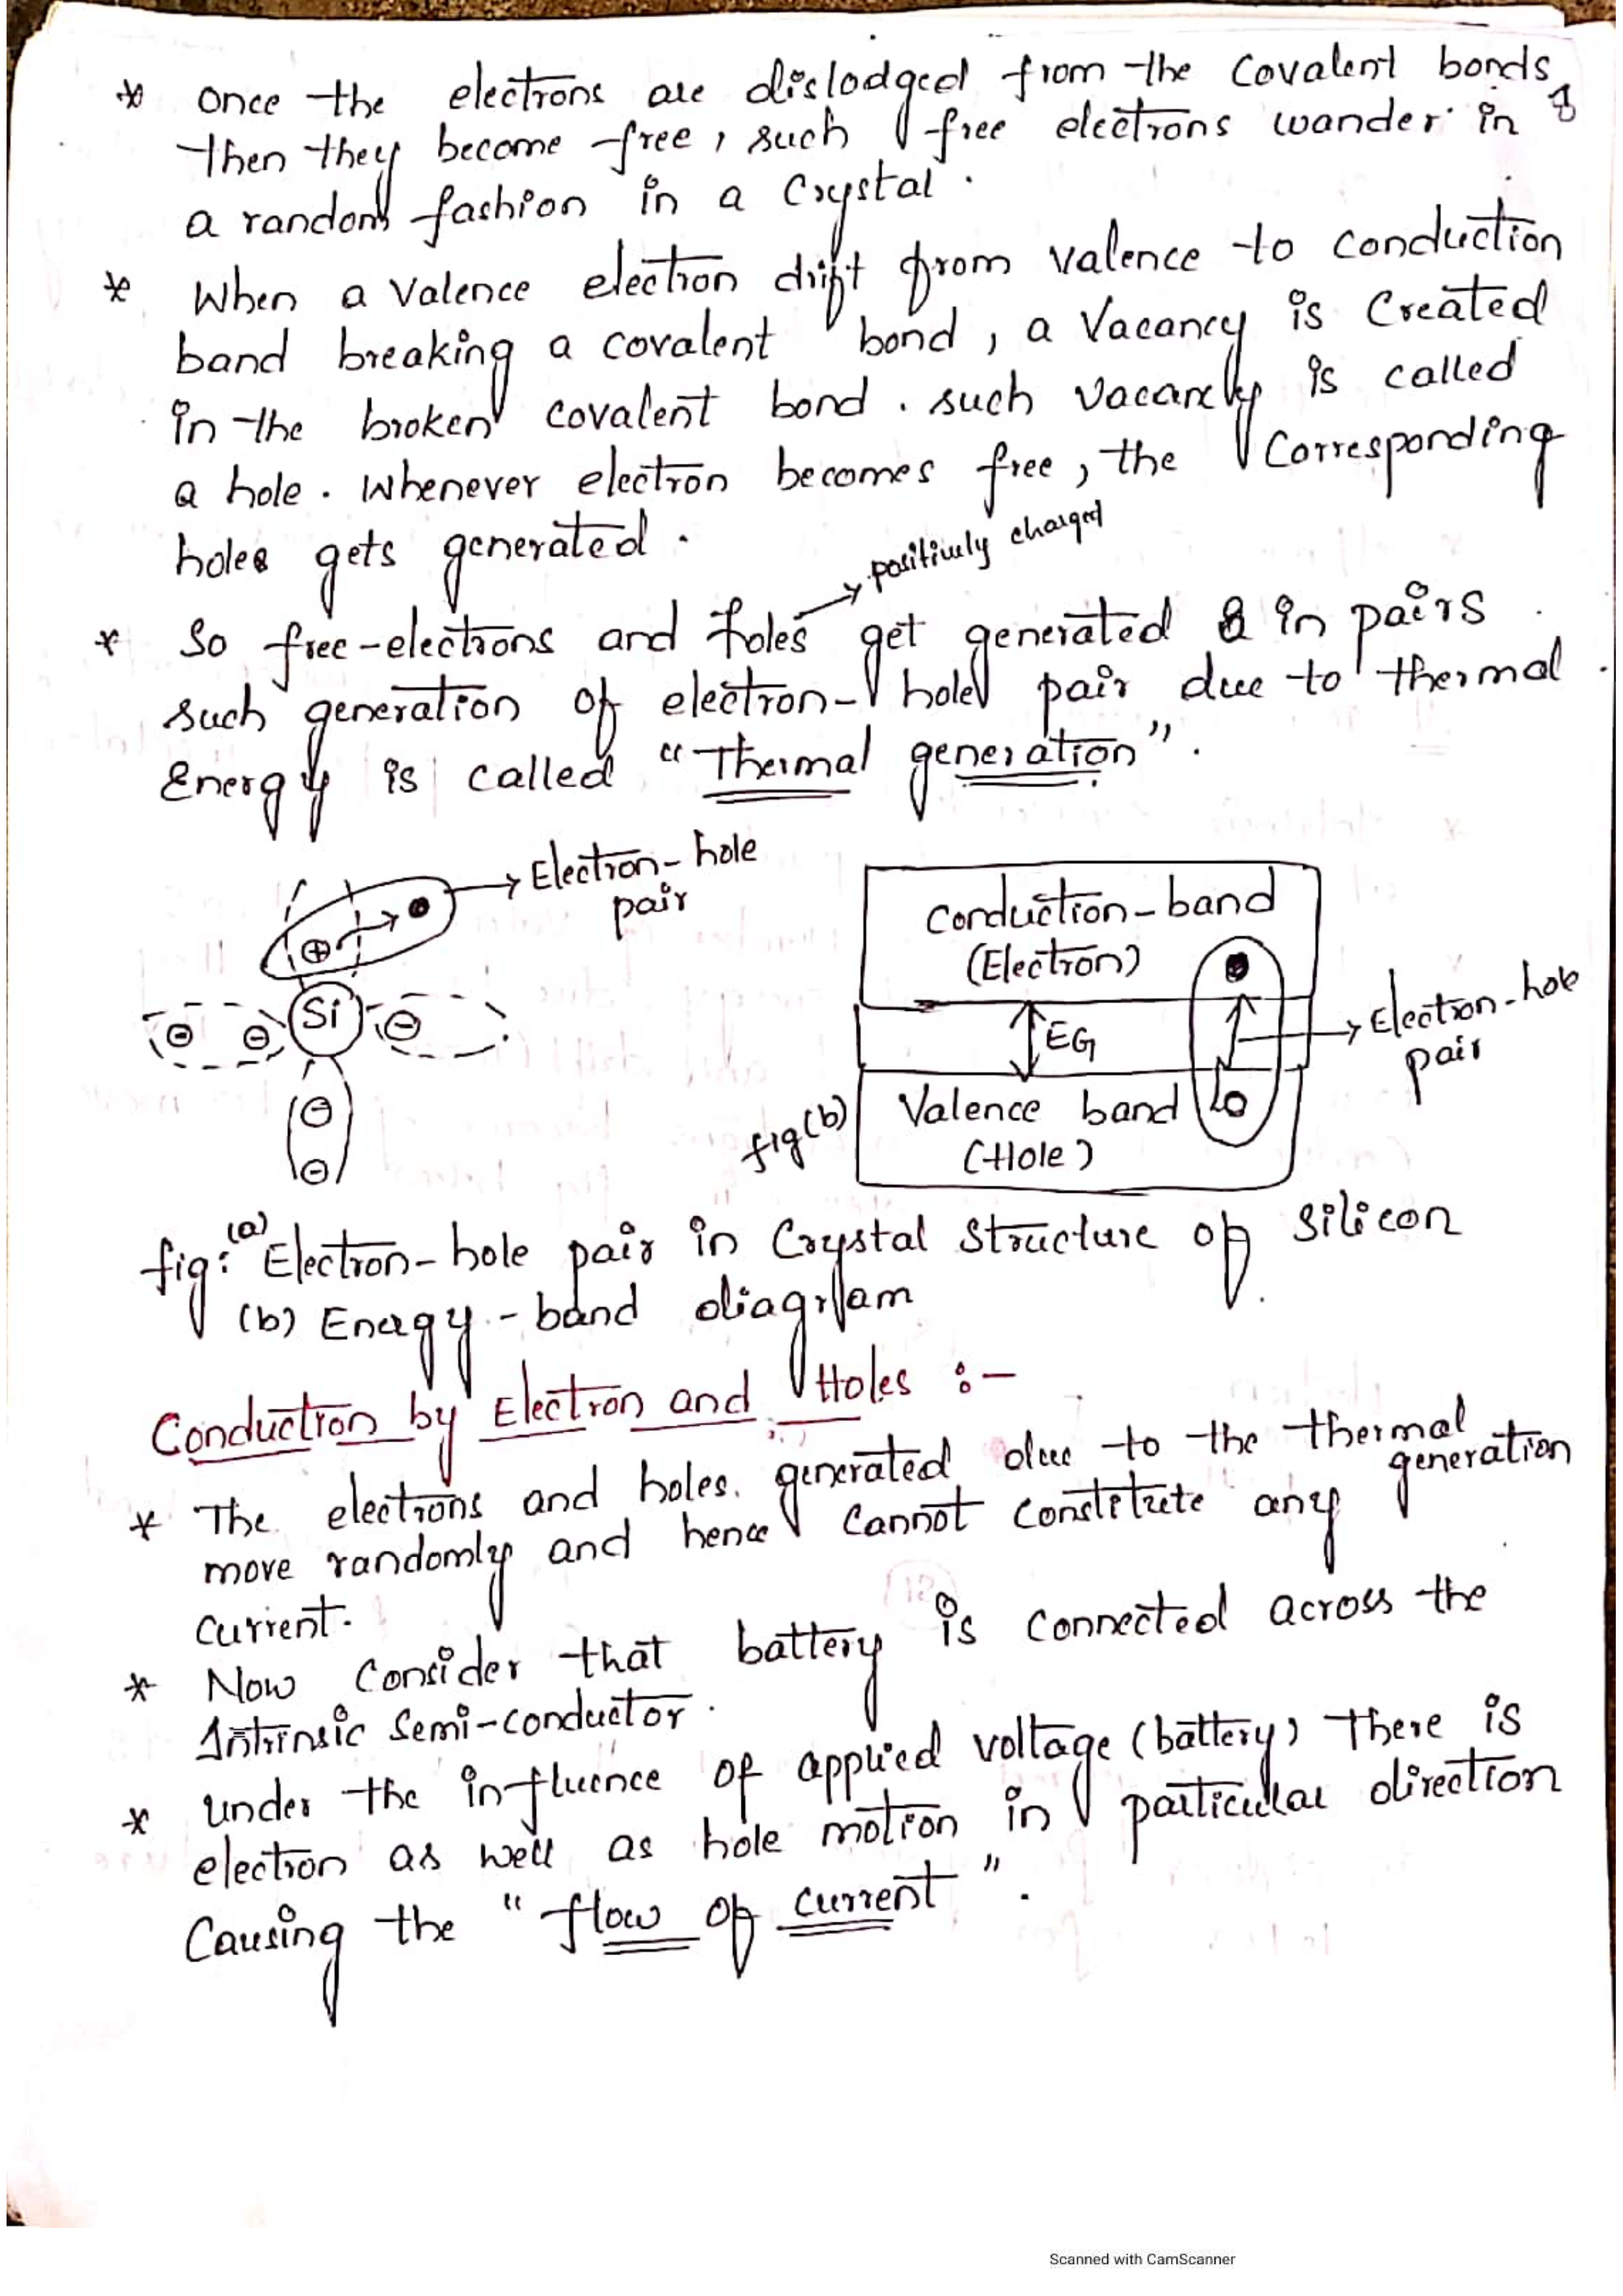 * once the electrons are dislodged from the covalent bonds,
then they become free, such free electrons wander in
a random fashion in a Crystal.
* When a Valence election drift from valence to conduction
band breaking a covalent bond, a Vacancy is Created
in the broken covalent bond. such vacancy is called
a hole. Whenever electron becomes free, the Corresponding
holes gets generated.
positively charged
* So free-electrons and holes get generated in pairs
such generation of electron-hole pair due to thermal
Energy is called "Thermal generation".
Electron-hole
pair
⊕
Si
⊖ ⊖ ⊖
⊖
⊖
Conduction-band
(Electron)
EG
Electron-hole
pair
Valence band
(Hole)
fig(b)
fig: (a) Electron-hole pair in Crystal Structure of Silicon.
(b) Energy-band diagram
Conduction by Electron and Holes :-
* The electrons and holes. generated due to the thermal generation
move randomly and hence cannot constitute any
current.
* Now Consider that battery is connected across the
Intrinsic Semi-conductor.
* under the influence of applied voltage (battery) There is
election as well as hole motion in particular direction
Causing the "flow of current".
Scanned with CamScanner